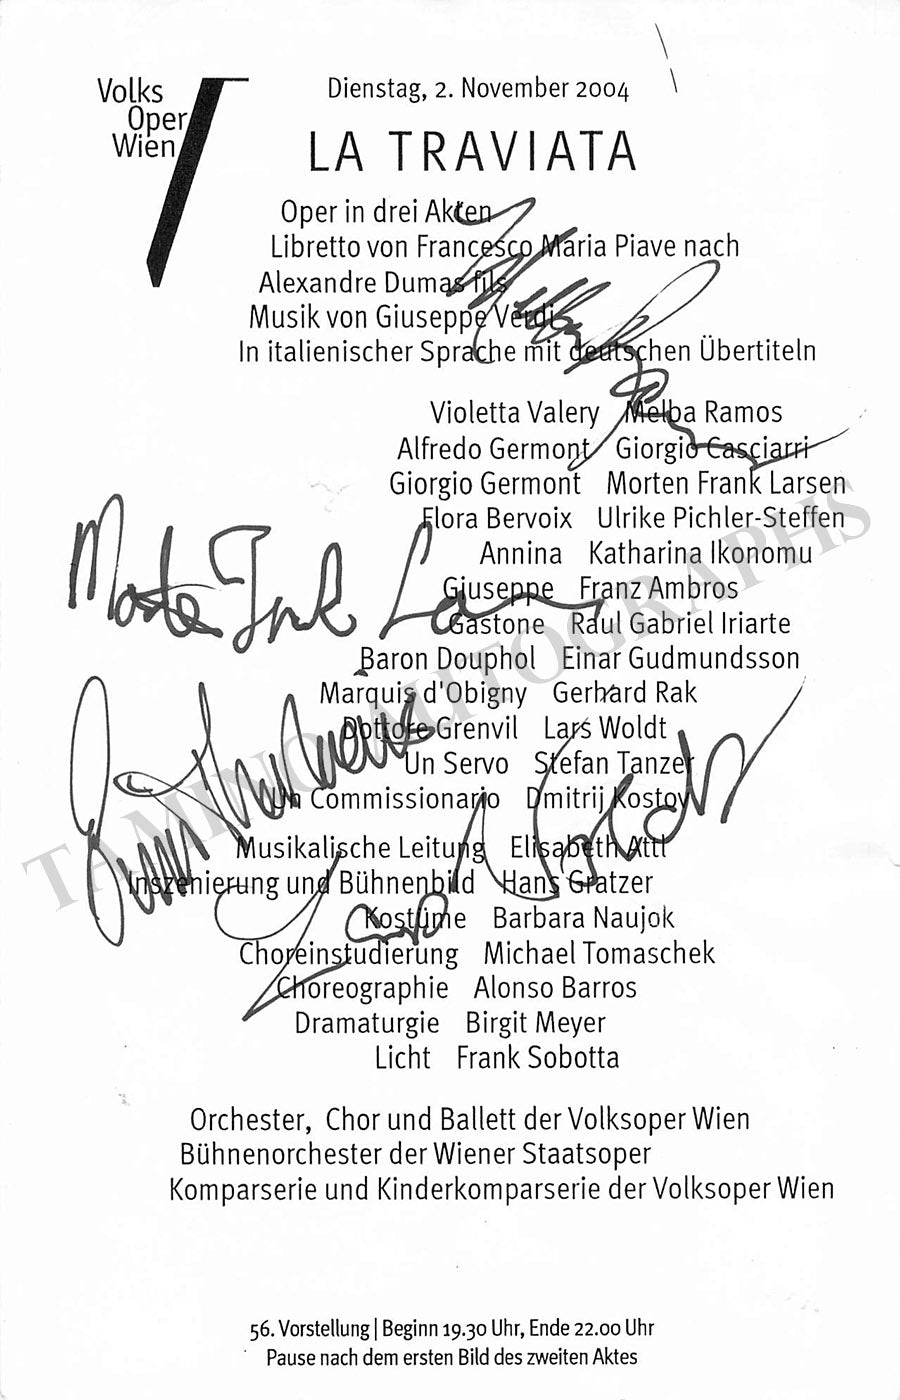 Volks
Oper
Wien
Dienstag, 2. November 2004
LA TRAVIATA
Oper in drei Akten
Libretto von Francesco Maria Piave nach
Alexandre Dumas fils
Musik von Giuseppe Verdi
In italienischer Sprache mit deutschen Übertiteln
Melba Ramos
Violetta Valery Melba Ramos
Alfredo Germont Giorgio Casciarri
Giorgio Germont Morten Frank Larsen
Flora Bervoix Ulrike Pichler-Steffen
Annina Katharina Ikonomu
Giuseppe Franz Ambros
Morten Frank Larsen
Gastone Raúl Gabriel Iriarte
Baron Douphol Einar Gudmundsson
Marquis d'Obigny Gerhard Rak
Dottore Grenvil Lars Woldt
Un Servo Stefan Tanzer
Einar Gudmundsson
Un Commissionario Dmitrij Kostov
Musikalische Leitung Elisabeth Attl
Inszenierung und Bühnenbild Hans Gratzer
Lars Woldt
Kostüme Barbara Naujok
Choreinstudierung Michael Tomaschek
Choreographie Alonso Barros
Dramaturgie Birgit Meyer
Licht Frank Sobotta
Orchester, Chor und Ballett der Volksoper Wien
Bühnenorchester der Wiener Staatsoper
Komparserie und Kinderkomparserie der Volksoper Wien
56. Vorstellung | Beginn 19.30 Uhr, Ende 22.00 Uhr
Pause nach dem ersten Bild des zweiten Aktes
TAMINO AUTOGRAPHS